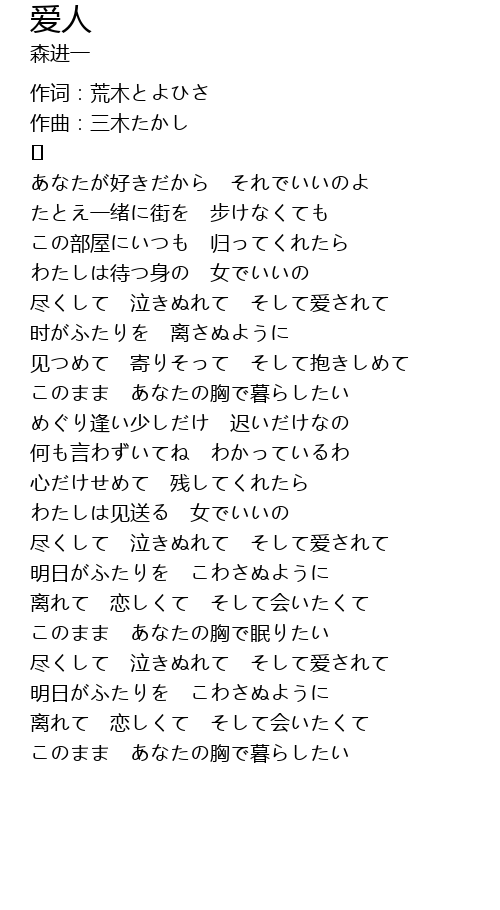 爱人
森进一
作词：荒木とよひさ
作曲：三木たかし
[]
あなたが好きだから　それでいいのよ
たとえ一绪に街を　步けなくても
この部屋にいつも　归ってくれたら
わたしは待つ身の　女でいいの
尽くして　泣きぬれて　そして爱されて
时がふたりを　离さぬように
见つめて　寄りそって　そして抱きしめて
このまま　あなたの胸で暮らしたい
めぐり逢い少しだけ　迟いだけなの
何も言わずいてね　わかっているわ
心だけせめて　残してくれたら
わたしは见送る　女でいいの
尽くして　泣きぬれて　そして爱されて
明日がふたりを　こわさぬように
离れて　恋しくて　そして会いたくて
このまま　あなたの胸で眠りたい
尽くして　泣きぬれて　そして爱されて
明日がふたりを　こわさぬように
离れて　恋しくて　そして会いたくて
このまま　あなたの胸で暮らしたい